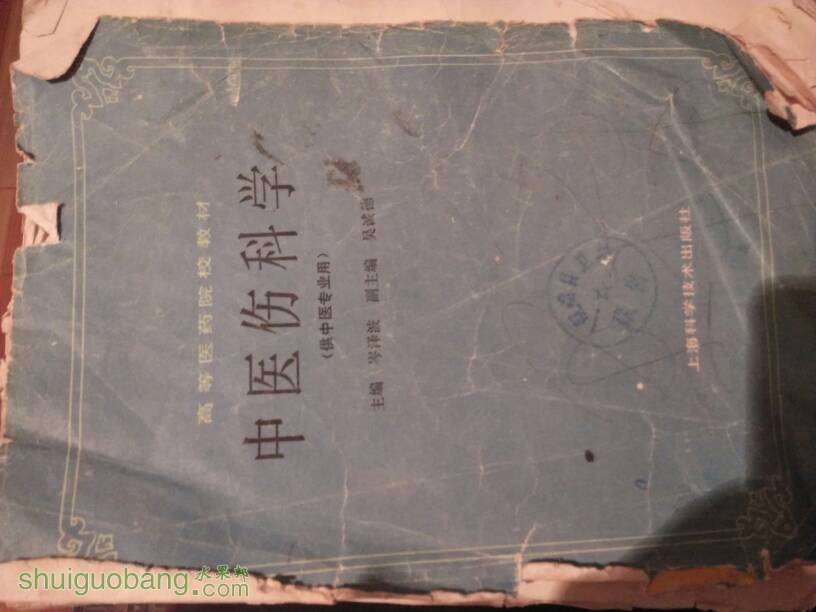 高等医药院校教材
中医伤科学
(供中医专业用)
主编 岑泽波 副主编 吴诚德
上海科学技术出版社
shuiguobang.com
水果邦